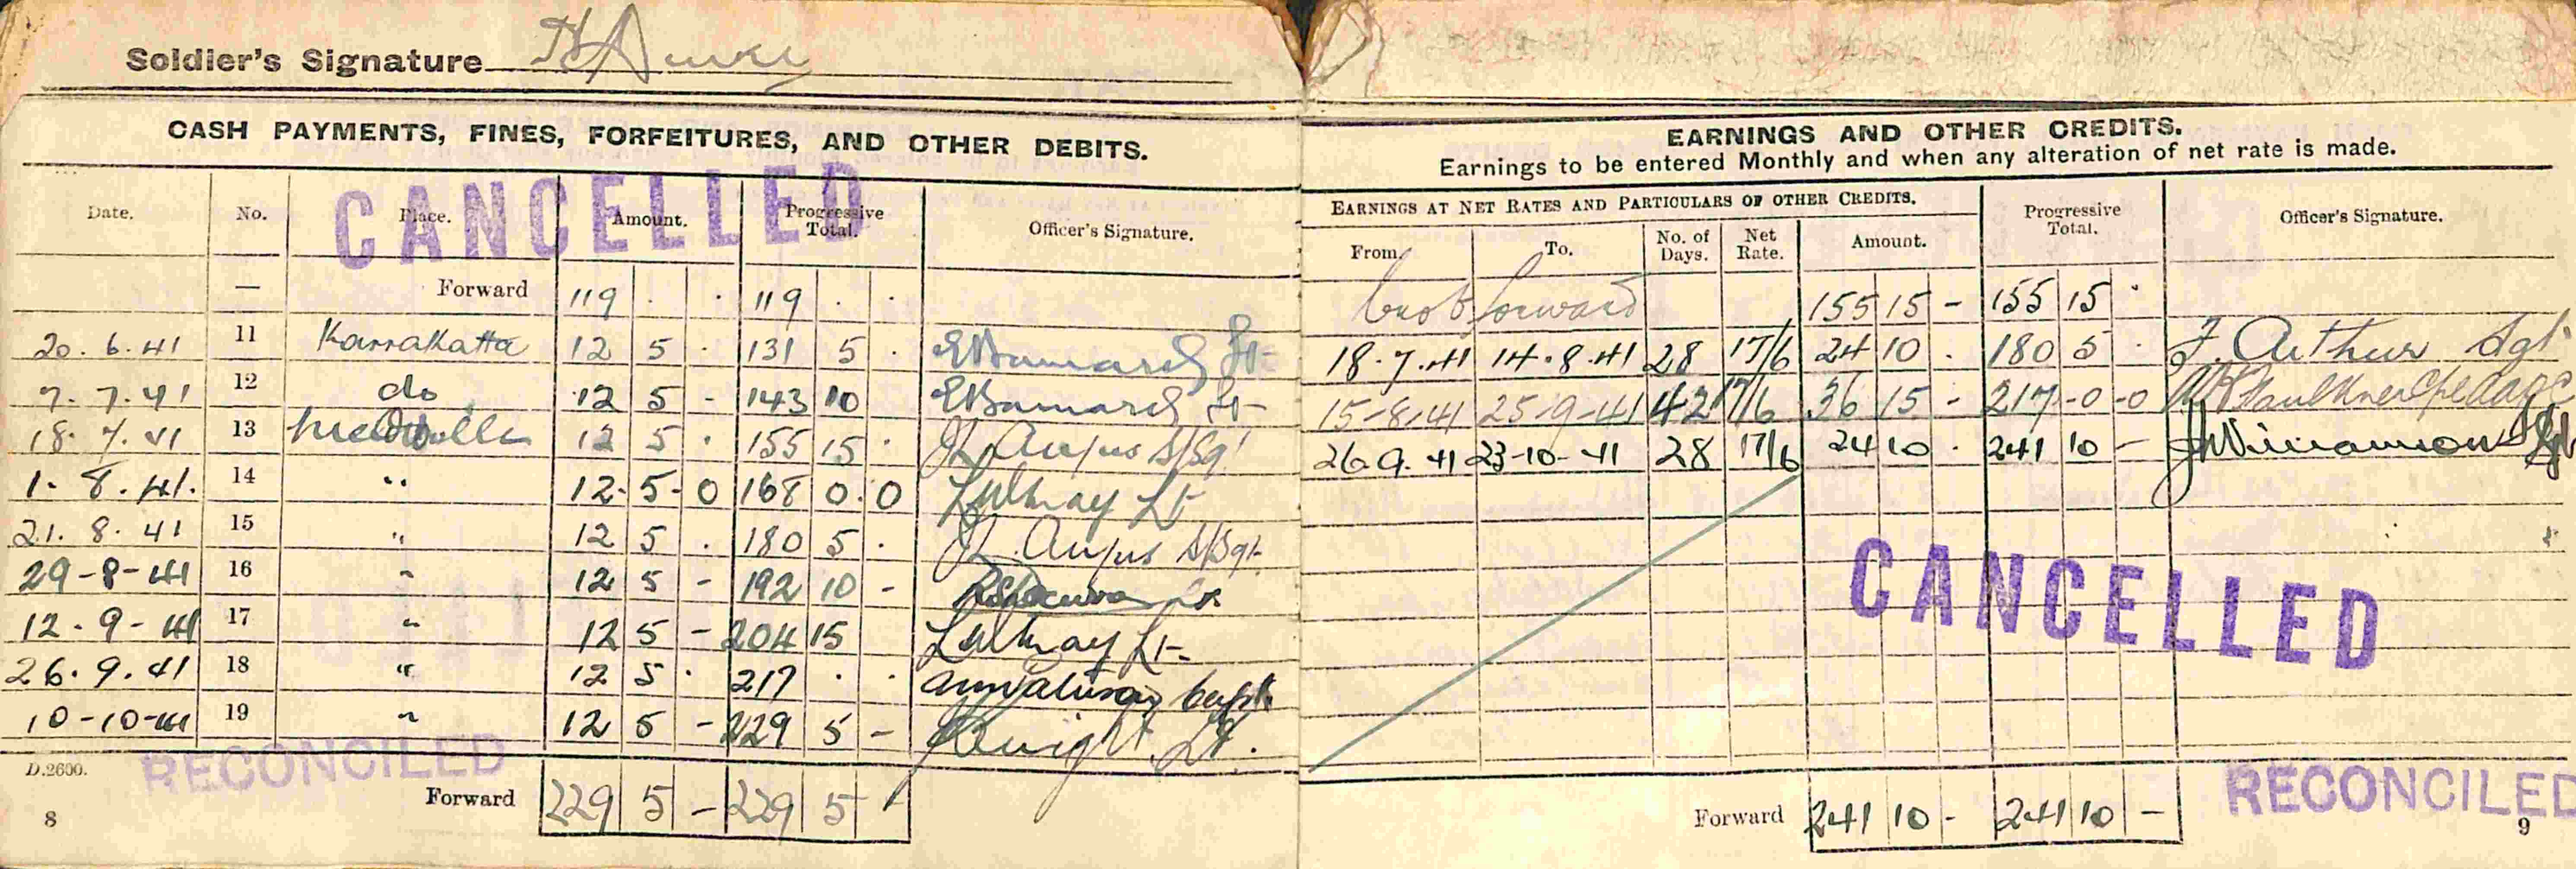 Soldier's Signature
CASH PAYMENTS, FINES, FORFEITURES, AND OTHER DEBITS.
CANCELLED
Date. No. Place. Amount. Progressive Total. Officer's Signature.
— Forward 119 . . 119 . .
20.6.41 11 Karrakatta 12 5 . 131 5 . Lt
7.7.41 12 do 12 5 - 143 10 Lt
18.7.41 13 12 5 . 155 15 . Angus S/Sgt
1.8.41. 14 " 12-5-0 168 0.0 Lt
21.8.41 15 " 12 5 . 180 5 . Angus S/Sgt
29-8-41 16 " 12 5 - 192 10 -
12-9-41 17 " 12 5 - 204 15 Lt
26.9.41 18 " 12 5 . 217 . . Capt
10-10-41 19 " 12 5 - 229 5 - Knight Lt.
RECONCILED
D.2600.
Forward 229 5 - 229 5 -
8
EARNINGS AND OTHER CREDITS.
Earnings to be entered Monthly and when any alteration of net rate is made.
EARNINGS AT NET RATES AND PARTICULARS OF OTHER CREDITS. Progressive Total. Officer's Signature.
From. To. No. of Days. Net Rate. Amount.
forward 155 15 - 155 15 .
18.7.41 14.8.41 28 17/6 24 10 . 180 5 . F. Arthur Sgt
15-8-41 25-9-41 42 17/6 36 15 - 217-0-0 Faulkner Cpl
26.9.41 23-10-41 28 17/6 24 10 . 241 10 - Williamson
CANCELLED
RECONCILED
Forward 241 10 - 241 10 -
9